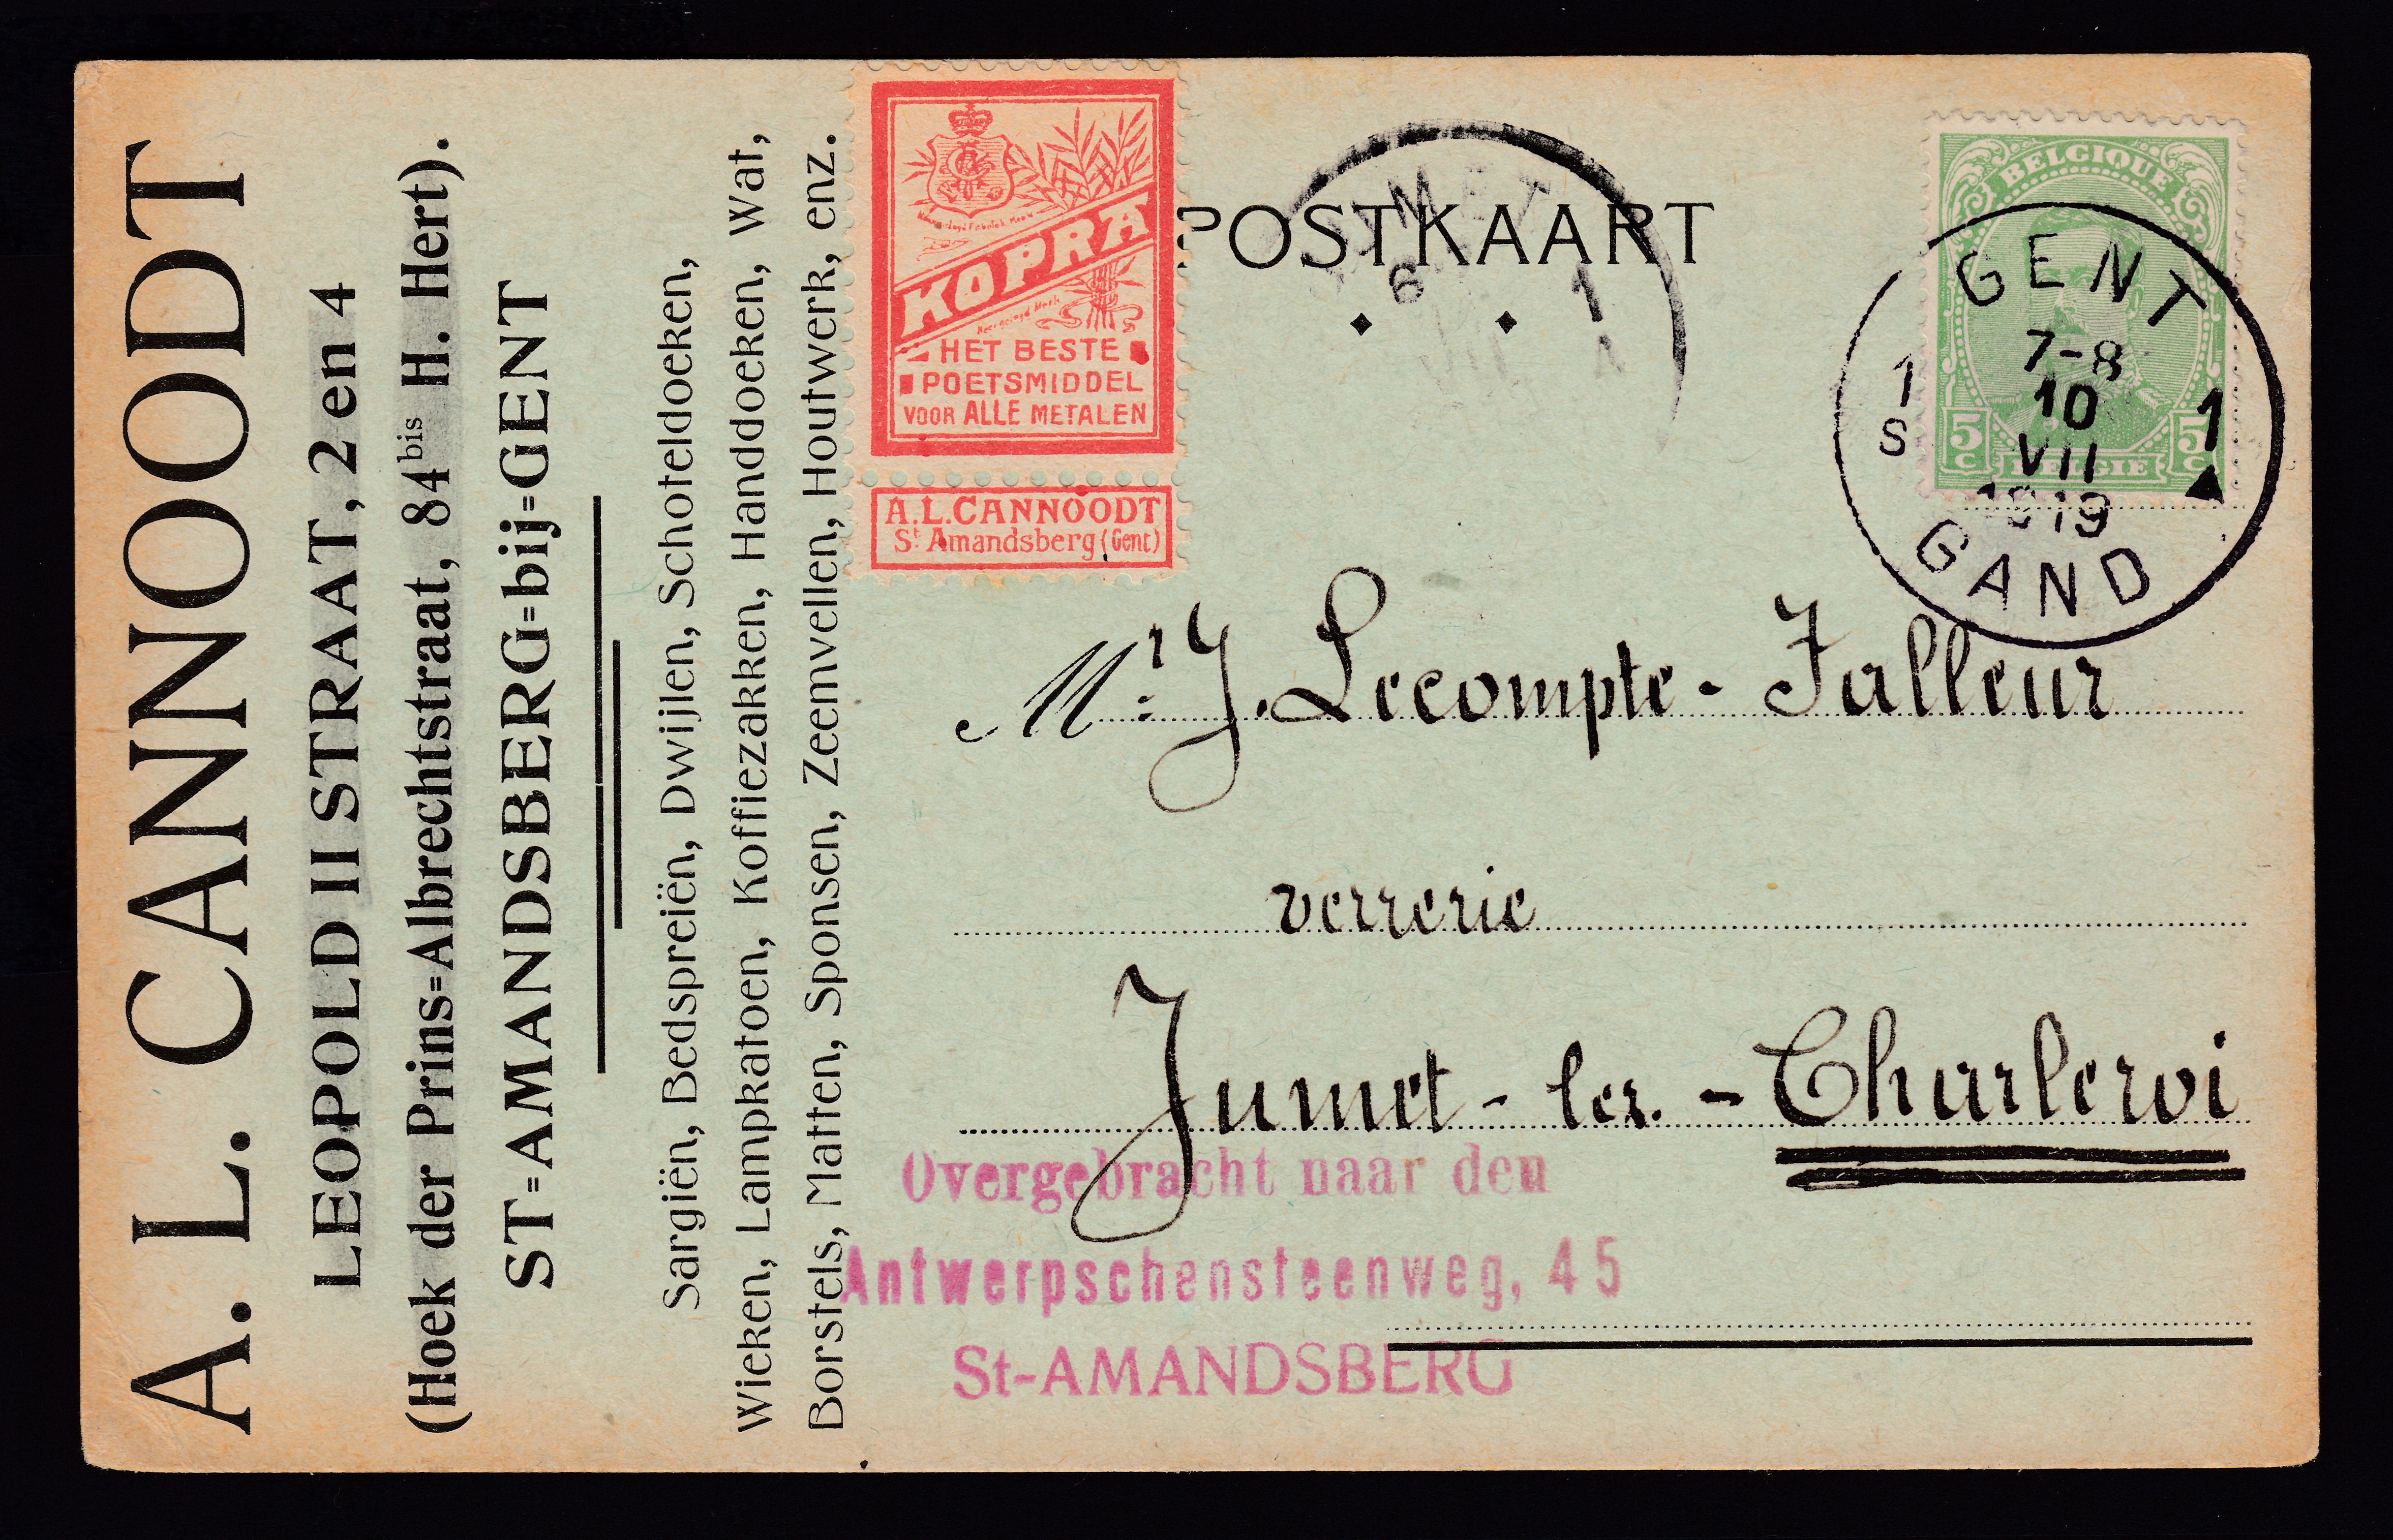 A. L. CANNOODT
LEOPOLD II STRAAT, 2 en 4
(Hoek der Prins=Albrechtstraat, 84bis H. Hert).
ST=AMANDSBERG=bij=GENT
Sargiën, Bedspreiën, Dwijlen, Schoteldoeken,
Wieken, Lampkatoen, Koffiezakken, Handdoeken, Wat,
Borstels, Matten, Sponsen, Zeemvellen, Houtwerk, enz.
KOPRA
HET BESTE
POETSMIDDEL
VOOR ALLE METALEN
A.L. CANNOODT
St Amandsberg (Gent)
POSTKAART
6 1
VII
BELGIQUE
5 C 5 C
BELGIE
GENT
7-8
10
VII
1919
1 S
1
GAND
Mr. J. Lecompte - Falleur
verrerie
Jumet - lez. - Charleroi
Overgebracht naar den
Antwerpschensteenweg, 45
St-AMANDSBERG